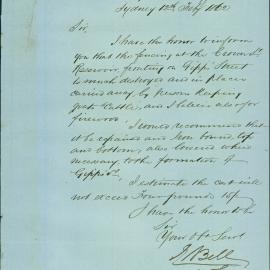 Sydney 12th Feby 1862
Sir,
I have the honor to inform
you that the fencing at the Crown St
Reservoir fronting on Gipps Street
is much destroyed and in places
carried away by persons keeping
goats & cattle, and I believe also for
firewood.
I would recommend that
it be repaired and Iron bound top
and bottom, also lowered where
necessary to the formation of
Gipps St.
I estimate the cost will
not exceed Four pounds
I have the honor to be
Sir
Your Obt Servt
Bell